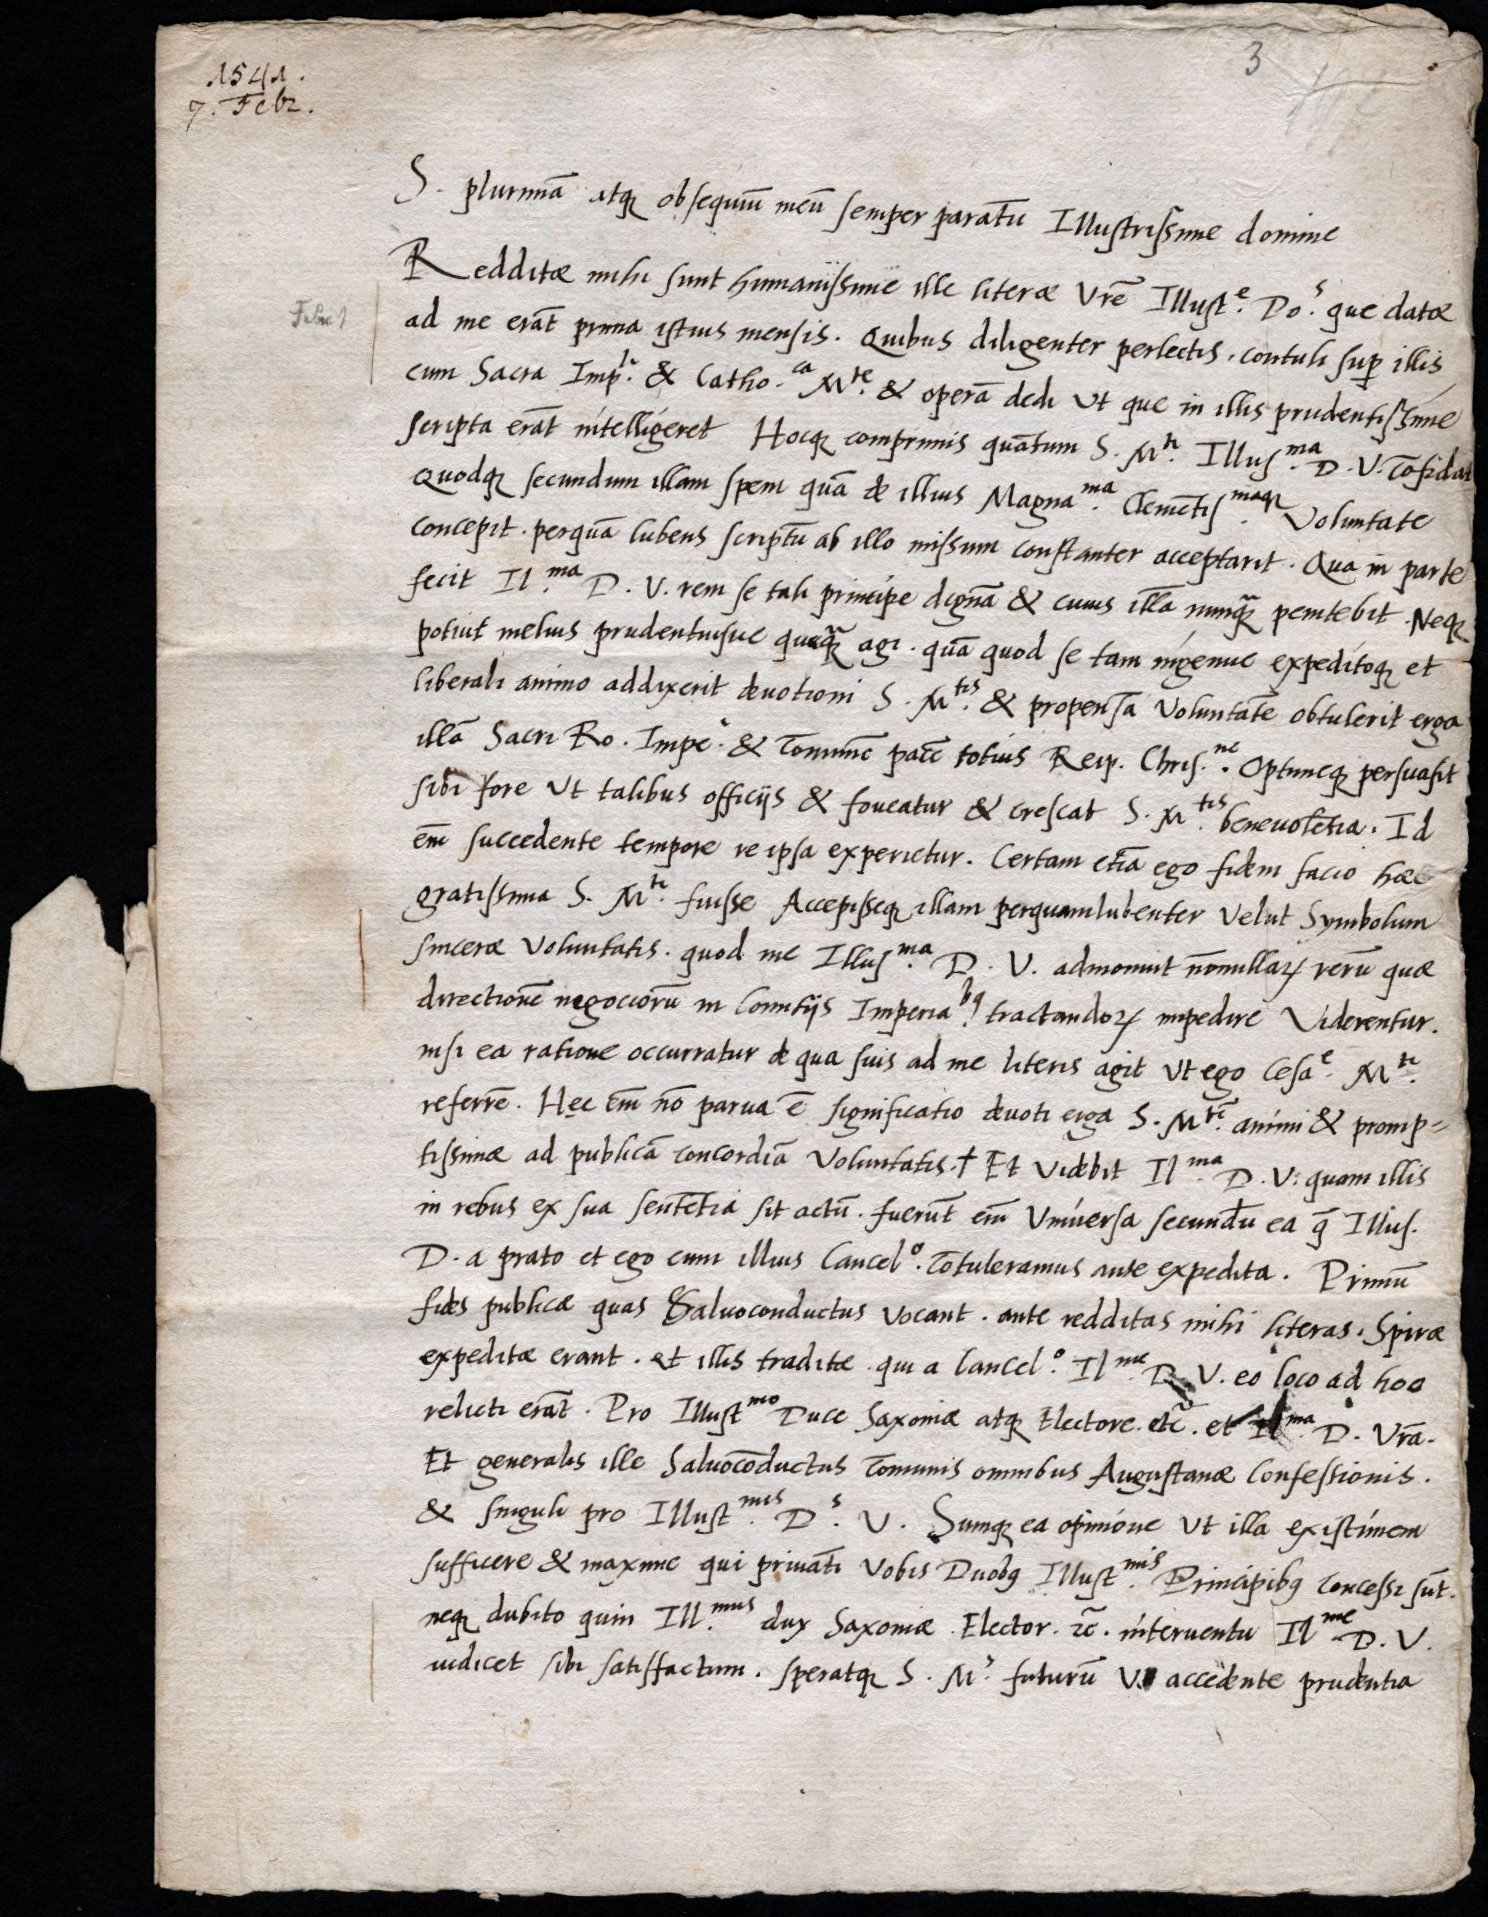 1541.
7. Febr.
3
S. plurimā atq obsequiū meū semper paratū Illustrissime domine
Redditæ mihi sunt humanissime ille literæ Vrē Illust.ᵉ Do.ˢ que datæ
ad me erāt prima istius mensis. Quibus diligenter perlectis, contuli sup illis
cum Sacra Imp.ˡⁱ & Catho.ᶜᵃ M.ᵗᵉ & operā dedi Vt que in illis prudentissime
scripta erāt intelligeret Hocq comprimis quātum S. M.ᵗⁱ Illus.ᵐᵃ D. V. cōfidat
Quodq secundum illam spem quā de illius Magna.ᵐᵃ Clemētis.ᵐᵃq Voluntate
concepit. perquā lubens scriptū ab illo missum constanter acceptarit. Qua in parte
fecit Il.ᵐᵃ D. V. rem se tali principe dignā & cuius illā nunq̄ penitebit. Neq
potuit melius prudentiusue quicq̄ agi. quā quod se tam ingenue expeditoq et
liberali animo addixerit deuotioni S. M.ᵗⁱˢ & propensā Voluntatē obtulerit erga
illā Sacri Ro. Impe.ʳ & Comunē pacē totius Reip. Chris.ⁿᵉ Optimeq persuasit
sibi fore Vt talibus officijs & foueatur & crescat S. M.ᵗⁱˢ beneuolētia. Id
em̄ succedente tempore re ipsa experietur. Certam etiā ego fidem facio hæc
gratissima S. M.ᵗⁱ fuisse Accepisseq illam perquamlubenter Velut Symbolum
sinceræ Voluntatis. quod me Illus.ᵐᵃ D. V. admonuit nōnullaꝝ rerū quæ
directionē negociorū in Comitijs Imperia.ᵇ⁹ tractandoꝝ impedire Viderentur.
nisi ea ratione occurratur de qua suis ad me literis agit Vt ego Cesa.ᵉ M.ᵗⁱ
referrē. Hec em̄ nō parua ē significatio deuoti erga S. M.ᵗᵉ animi & promp=
tissimæ ad publicā concordiā Voluntatis.† Et Videbit Il.ᵐᵃ D. V. quam illis
in rebus ex sua sentētia sit actū. fuerūt em̄ Vniuersa secundū ea q̄ Illus.
D. a prato et ego cum illius Cancel.ᵒ cōtuleramus ante expedita. Primū
fides publicæ quas Saluoconductus Vocant. ante redditas mihi literas. Spiræ
expeditæ erant. et illis traditæ qui a Cancel.ᵒ Il.ᵐᵉ D. V. eo loco ad hoc
relicti erāt. Pro Illust.ᵐᵒ Duce Saxoniæ atq Electore. etc̄. et Il.ᵐᵃ D. Vrā.
Et generalis ille Saluocōductus Cōmunis omnibus Augustanæ Confessionis.
& singuli pro Illust.ᵐⁱˢ D.ˢ V. Sumq ea opinione Vt illa existimem
sufficere & maxime qui priuati Vobis Duob⁹ Illust.ᵐⁱˢ Principib⁹ concessi sūt.
neq dubito quin Ill.ᵐᵘˢ dux Saxoniæ. Elector. ⁊c̄. interuentu Il.ᵐᵉ D. V.
iudicet sibi satisfactum. speratq S. M.ˢ futurū Vt accedente prudentia